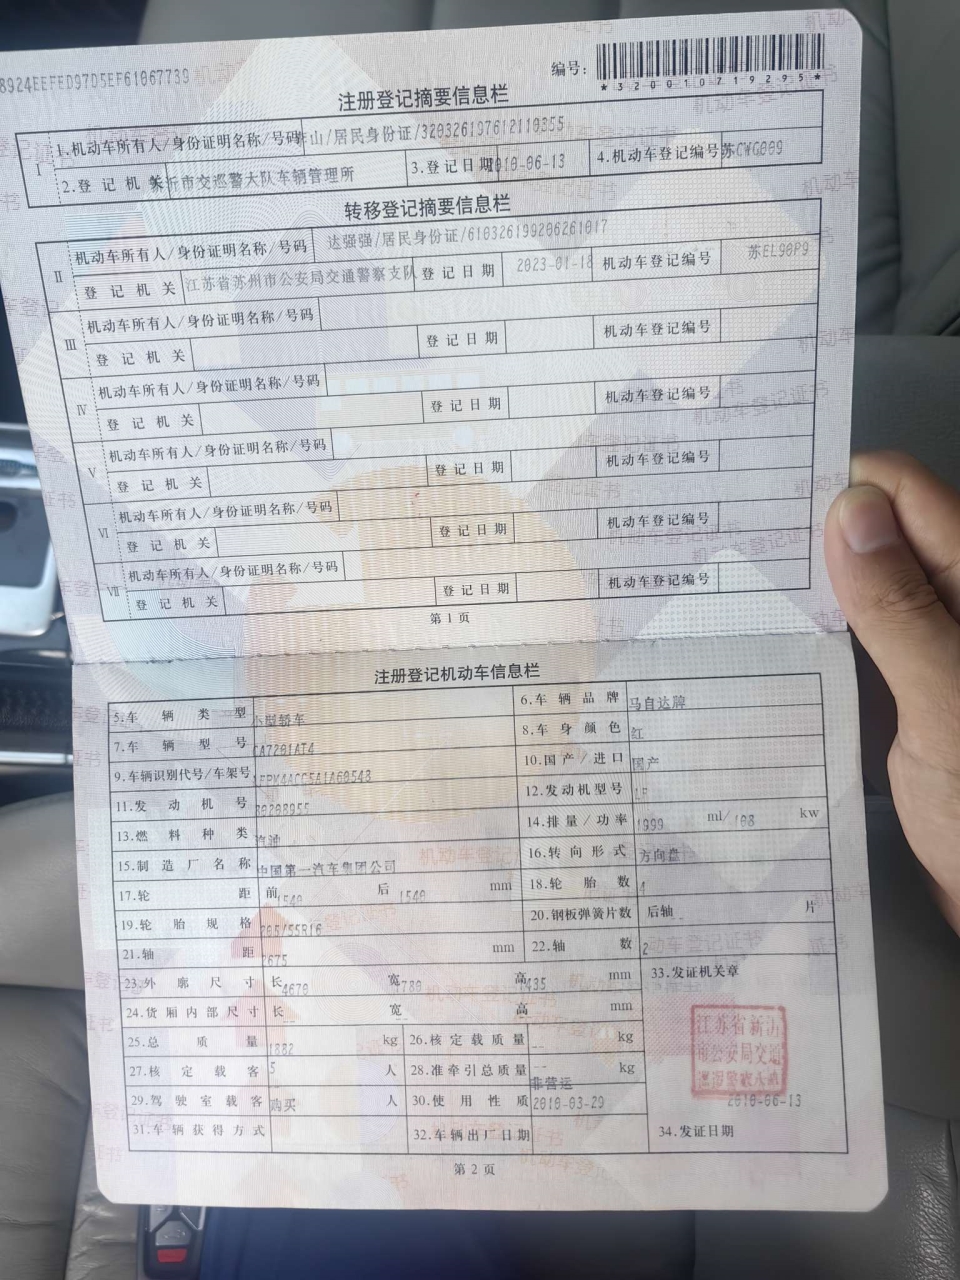 8924EEFED97D5EF61067739
编号:
*320010719295*
注册登记摘要信息栏
I 1.机动车所有人/身份证明名称/号码 山/居民身份证/320326197612110355
2.登记机关 新沂市交巡警大队车辆管理所 3.登记日期 2010-06-13 4.机动车登记编号 苏CWG009
转移登记摘要信息栏
II 机动车所有人/身份证明名称/号码 达强强/居民身份证/610326199206261017
登记机关 江苏省苏州市公安局交通警察支队 登记日期 2023-01-18 机动车登记编号 苏EL90P9
III 机动车所有人/身份证明名称/号码
登记机关 登记日期 机动车登记编号
IV 机动车所有人/身份证明名称/号码
登记机关 登记日期 机动车登记编号
V 机动车所有人/身份证明名称/号码
登记机关 登记日期 机动车登记编号
VI 机动车所有人/身份证明名称/号码
登记机关 登记日期 机动车登记编号
VII 机动车所有人/身份证明名称/号码
登记机关 登记日期 机动车登记编号
第1页
注册登记机动车信息栏
5.车辆类型 小型轿车 6.车辆品牌 马自达牌
7.车辆型号 CA7201AT4 8.车身颜色 红
9.车辆识别代号/车架号 10.国产/进口 国产
11.发动机号 12.发动机型号 LF
13.燃料种类 汽油 14.排量/功率 1999 ml/ 108 kw
15.制造厂名称 中国第一汽车集团公司 16.转向形式 方向盘
17.轮距 前 1540 后 1540 mm 18.轮胎数 4
19.轮胎规格 205/55R16 20.钢板弹簧片数 后轴 片
21.轴距 2675 mm 22.轴数 2
23.外廓尺寸 长 4670 宽 1780 高 1435 mm 33.发证机关章
24.货厢内部尺寸 长 宽 高 mm
江苏省新沂
市公安局交通
25.总质量 1882 kg 26.核定载质量 -- kg
27.核定载客 5 人 28.准牵引总质量 -- kg
29.驾驶室载客 人 30.使用性质 非营运
31.车辆获得方式 购买 32.车辆出厂日期 2010-03-29 34.发证日期 2010-06-13
第2页